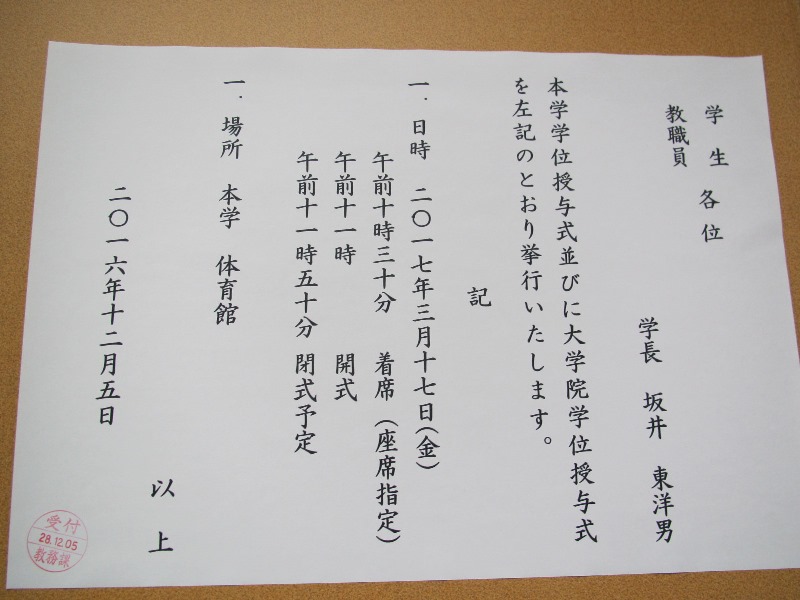 学生 各位
教職員
学長 坂井 東洋男
本学学位授与式並びに大学院学位授与式
を左記のとおり挙行いたします。
記
一．日時 二〇一七年三月十七日(金)
午前十時三十分 着席(座席指定)
午前十一時 開式
午前十一時五十分 閉式予定
一．場所 本学 体育館
以上
二〇一六年十二月五日
受付
28.12.05
教務課